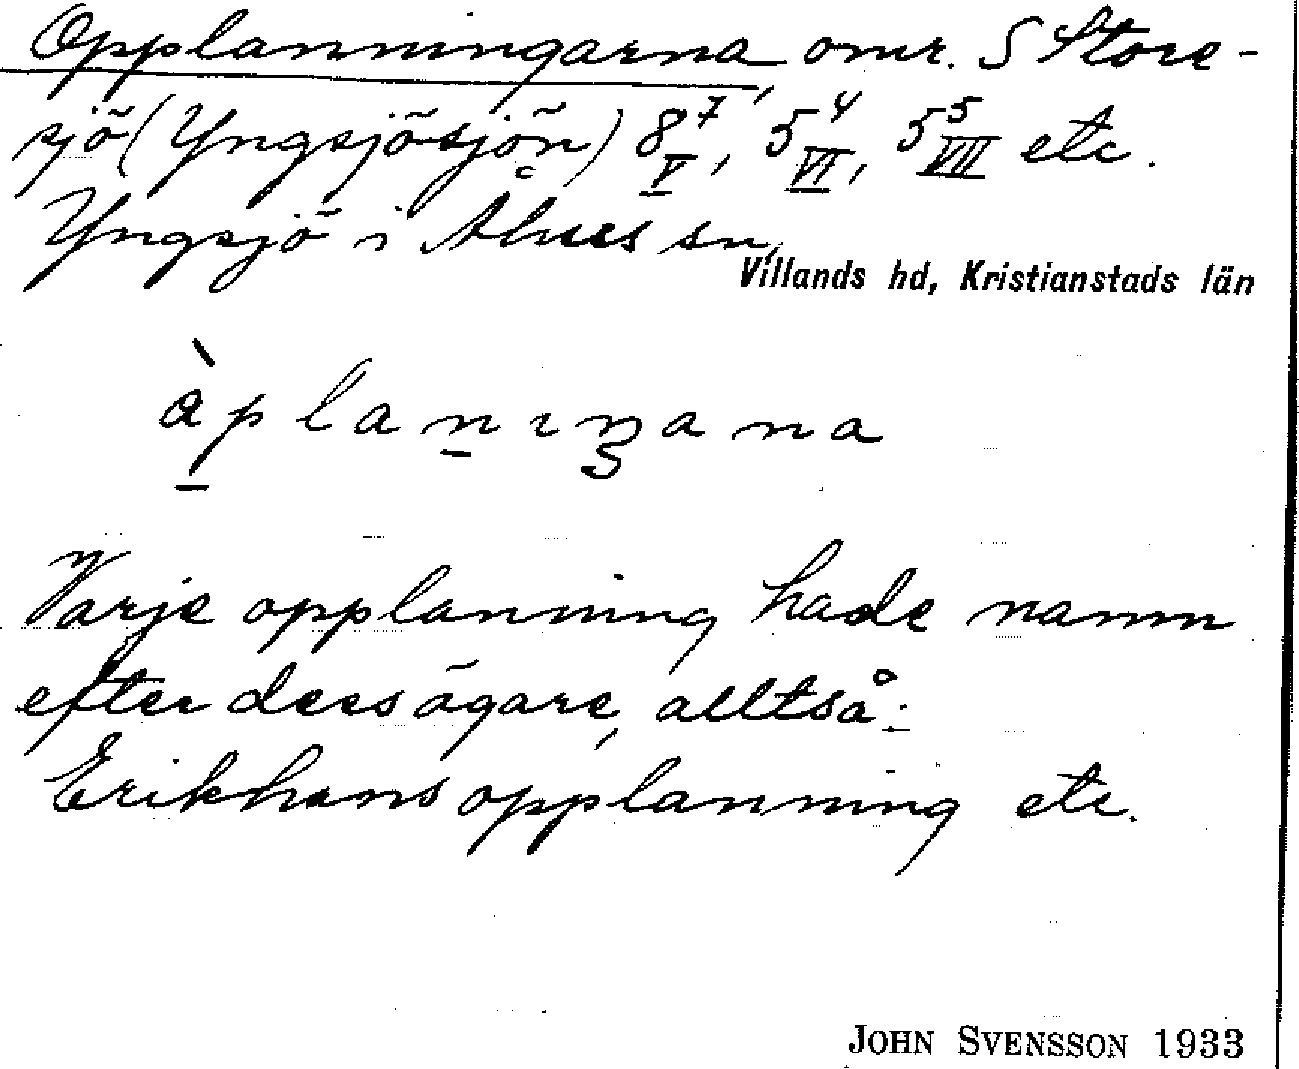 Opplanningarna, omr. S Store-
sjö (Yngsjösjön) 8 7/V, 5 4/VI, 5 5/VII etc.
Yngsjö i Åhus sn,
Villands hd, Kristianstads län
àplanıŋana
Varje opplanning hade namn
efter dess ägare, alltså:
Erikhans opplanning etc.
JOHN SVENSSON 1933